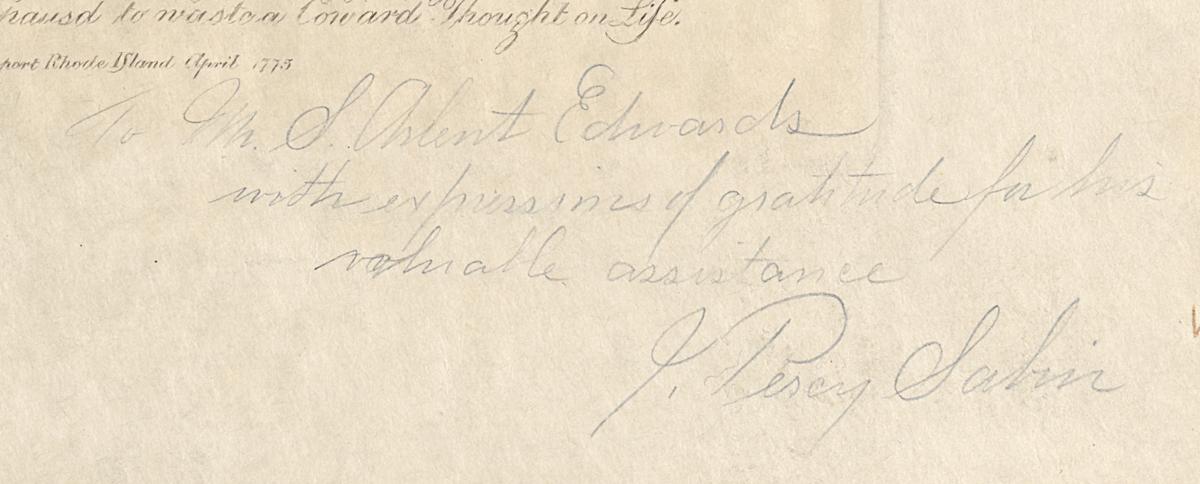 pausd to waste a Coward Thought on Life.
port Rhode Island April 1775
To Mr. S. Arlent Edwards
with expressions of gratitude for his
valuable assistance
J. Percy Sabin